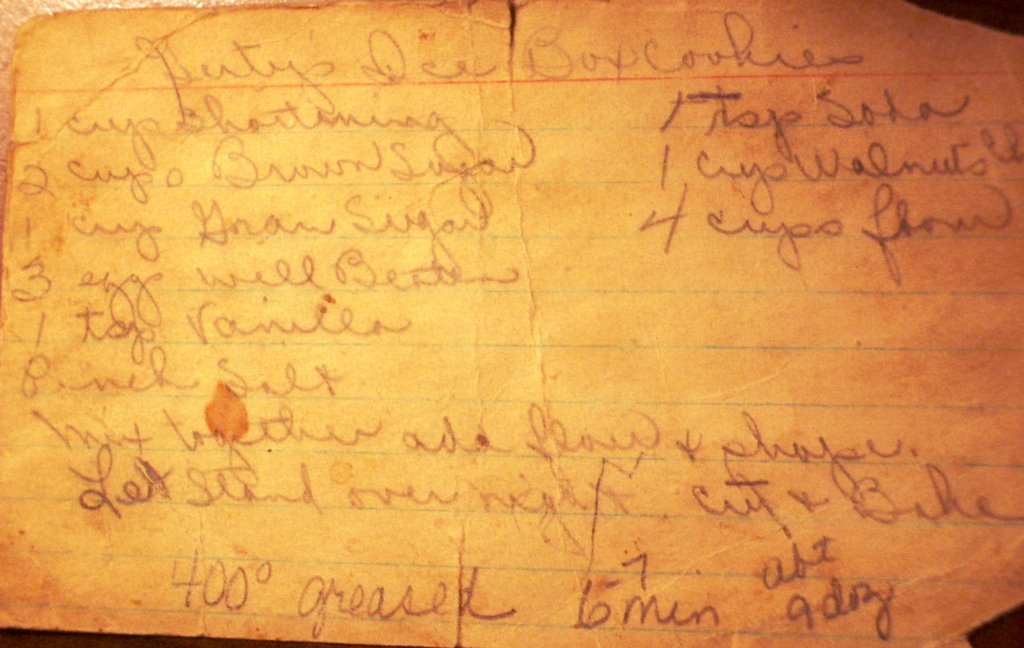 Gerty's Ice Box Cookies
1 cup Shortening
2 cups Brown Sugar
1 cup Gran Sugar
3 eggs well Beaten
1 tsp Vanilla
Pinch Salt
1 Tsp Soda
1 cup Walnuts
4 cups flour
Mix together add flour & shape.
Let Stand over night. cut & Bake
400° greased 6 7 min abt 9 doz